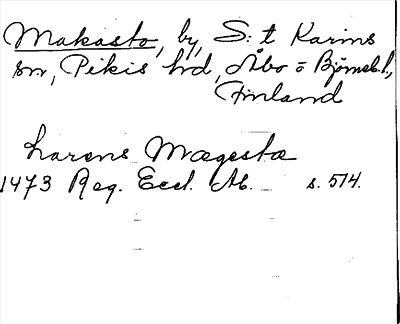 Makasto, by, S:t Karins
sn, Pikis hd, Åbo o Björneb. l.,
Finland
Larens Magesta
1473 Reg. Eccl. Ab. s. 514.